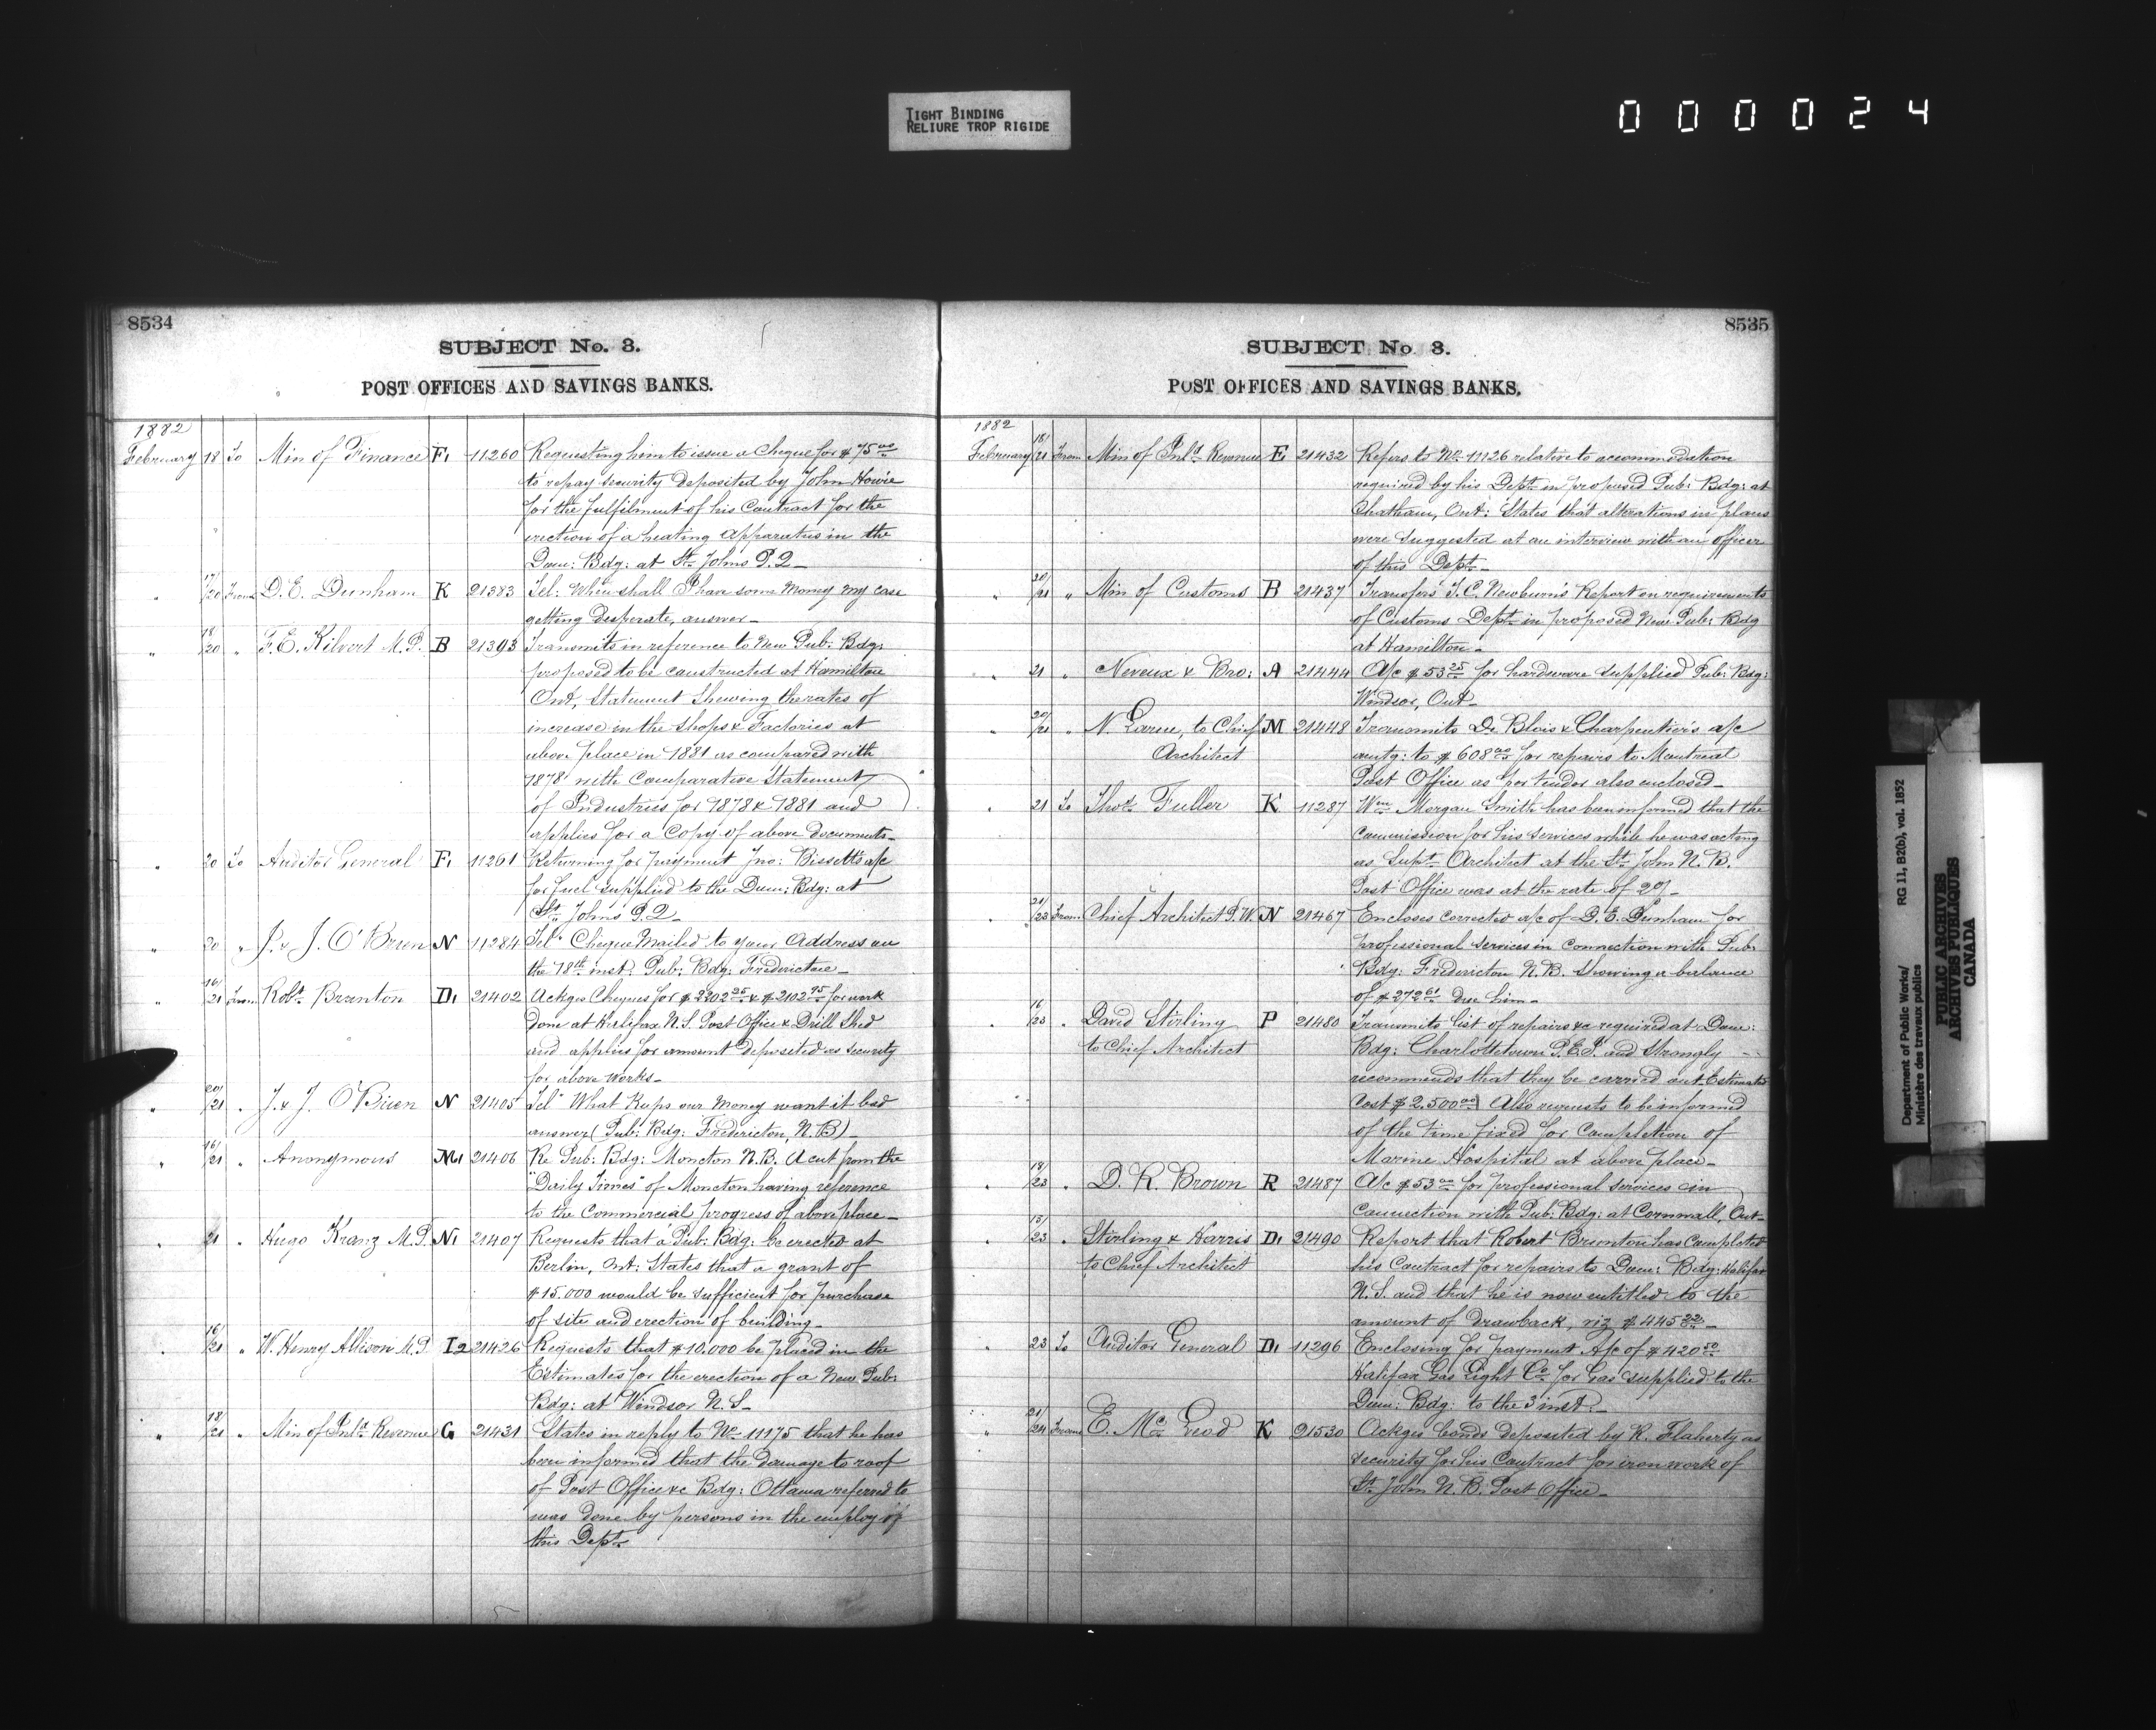 TIGHT BINDING
RELIURE TROP RIGIDE
000024
8534
SUBJECT No. 3.
POST OFFICES AND SAVINGS BANKS.
1882
February 18 To Min of Finance F1 11260 Requesting him to issue a Cheque for $75.00
to repay security deposited by John Howie
for the fulfilment of his Contract for the
erection of a heating apparatus in the
Dom: Bdg: at St. Johns P.Q_
" 17/20 From D. E. Dunham K 21383 Tel: When shall I have some Money my case
getting desperate, answer_
" 18/20 " F. E. Kilvert M.P. B 21393 Transmits in reference to New Pub: Bdg:
proposed to be constructed at Hamilton
Ont, Statement Shewing the rates of
increase in the Shops & Factories at
above place in 1881 as compared with
1878 with Comparative Statement
of Industries for 1878 & 1881 and
applies for a Copy of above documents_
" 20 To Auditor General F1 11261 Returning for payment Jno: Bissett's a/c
for fuel supplied to the Dom: Bdg: at
St. Johns P.Q_
" 20 " J. & J. O'Brien N 11284 Tel" Cheque Mailed to your Address on
the 18th inst. Pub: Bdg: Fredericton_
" 16/21 From Robt Brunton D1 21402 Ackges Cheques for $2202 25 & $2102 95 for work
done at Halifax N.S. Post Office & Drill Shed
and applies for amount deposited as security
for above works_
" 20/21 " J. & J. O'Brien N 21405 Tel" What Keeps our Money want it bad
answer (Pub: Bdg: Fredericton, N.B)_
" 16/21 " Anonymous M1 21406 Re Pub: Bdg: Moncton N.B. A cut from the
"Daily Times" of Moncton having reference
to the Commercial progress of above place_
" 21 " Hugo Kranz M.P. N1 21407 Requests that a Pub: Bdg: be erected at
Berlin, Ont: States that a grant of
$15.000 would be sufficient for purchase
of site and erection of building_
" 16/21 " W. Henry Allison M.P. I2 21426 Requests that $10.000 be placed in the
Estimates for the erection of a New Pub:
Bdg: at Windsor N.S_
" 18/21 " Min of Inld Revenue G 21431 States in reply to No. 11175 that he has
been informed that the damage to roof
of Post Office &c Bdg: Ottawa referred to
was done by persons in the employ of
this Dept.
8535
SUBJECT No 3.
POST OFFICES AND SAVINGS BANKS.
1882
February 18/21 From Min of Inld Revenue E 21432 Refers to No. 11126 relative to accommodation
required by his Dept. in proposed Pub: Bdg: at
Chatham, Ont: States that alterations in plans
were suggested at an interview with an officer
of this Dept_
" 20/21 " Min of Customs B 21437 Transfers T. C. Newburn's Report on requirements
of Customs Dept. in proposed New Pub: Bdg
at Hamilton_
" 21 " Neveux & Bro: A 21444 A/c $53 25 for hardware supplied Pub: Bdg:
Windsor, Ont_
" 20/21 " N. Larue, to Chief M 21448 Transmits De Blois & Charpentier's a/c
Architect amtg: to $608 00 for repairs to Montreal
Post Office as per tender also enclosed_
" 21 To Thos. Fuller K 11287 Wm Morgan Smith has been informed that the
commission for his services while he was acting
as Supt. Architect at the St. John N.B.
Post Office was at the rate of 2%_
" 21/23 From Chief Architect P.W. N 21467 Encloses corrected a/c of D. E. Dunham for
professional services in connection with Pub:
Bdg: Fredericton N.B. Showing a balance
of $272 61 due him_
" 16/23 " David Stirling P 21480 Transmits list of repairs &c required at Dom:
to Chief Architect Bdg: Charlottetown P.E.I. and Strongly
recommends that they be carried out Estimated
Cost $2.500 00 Also requests to be informed
of the time fixed for Completion of
Marine Hospital at above place_
" 18/23 " D. R. Brown R 21487 A/c $53 00 for professional services in
connection with Pub: Bdg: at Cornwall, Ont_
" 15/23 " Stirling & Harris D1 21490 Report that Robert Brunton has Completed
to Chief Architect his Contract for repairs to Dom: Bdg: Halifax
N.S. and that he is now entitled to the
amount of drawback, viz $445 22_
" 23 To Auditor General D1 11296 Enclosing for payment A/c of $420 50
Halifax Gas Light Co. for Gas supplied to the
Dom: Bdg: to the 3 inst._
" 21/24 From E. Mc Leod K 21530 Ackges bonds deposited by K. Flaherty as
security for his Contract for iron work of
St. John N.B. Post Office_
Department of Public Works/ RG 11, B2(b), vol. 1852
Ministère des travaux publics
PUBLIC ARCHIVES
ARCHIVES PUBLIQUES
CANADA